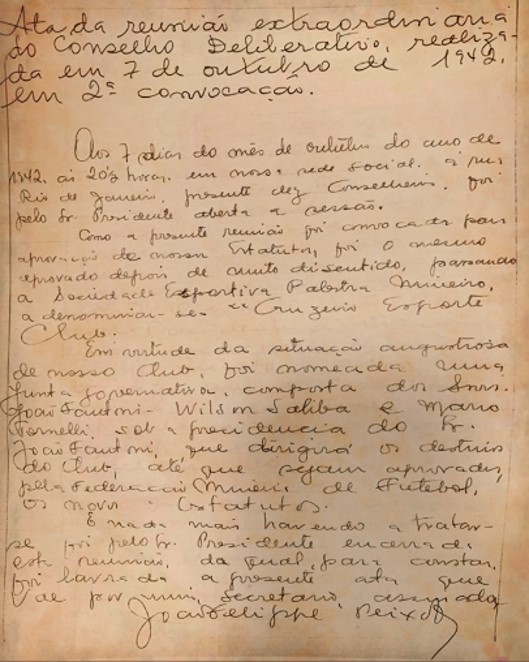 Ata da reunião extraordinaria
do Conselho Deliberativo, realiza-
da em 7 de outubro de 1942,
em 2ª convocação.
Aos 7 dias do mês de outubro do ano de
1942, ás 20½ horas, em nossa sede social, á rua
Rio de Janeiro, presente dez Conselheiros, foi
pelo Sr. Presidente aberta a sessão.
Como a presente reunião foi convocada para
aprovação de nossos Estatutos, foi o mesmo
aprovado depois de muito discutido, passando
a Sociedade Esportiva Palestra Mineiro,
a denominar-se "Cruzeiro Esporte
Club.
Em virtude da situação angustiosa
de nosso Club, foi nomeada uma
junta governativa, composta dos Snrs.
João Fantoni - Wilson Saliba e Mario
Tornelli, sob a presidencia do Sr.
João Fantoni, que dirigirá os destinos
do Club, até que sejam aprovados,
pela Federação Mineira de Futebol,
os novos Estatutos.
E nada mais havendo a tratar-
se foi pelo Sr. Presidente encerrada
esta reunião, da qual, para constar,
foi lavrada a presente ata que
vae por mim, secretario, assinada
João Felippe Peixoto